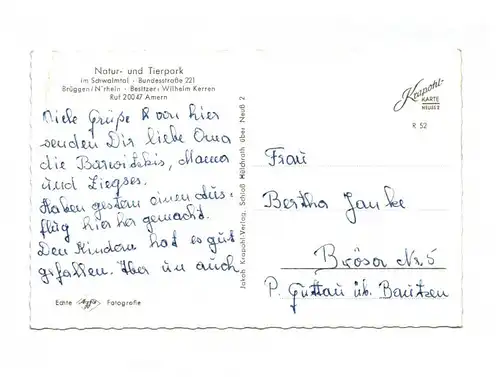 Natur- und Tierpark
im Schwalmtal · Bundesstraße 221
Brüggen/N'rhein · Besitzer: Wilhelm Kerren
Ruf 20047 Amern
Viele Grüße von hier
senden Dir liebe Oma
die Barwitzkis, Mama
und Ziegses.
Haben gestern einen Aus-
flug hierher gemacht.
Den Kindern hat es gut
gefallen. Aber un auch
Echte Agfa Fotografie
Jakob Krapohl-Verlag, Schloß Hülchrath über Neuß 2
Krapohl-
KARTE
NEUSS 2
R 52
Frau
Bertha Janke
Brösa Nr. 5
P. Guttau üb. Bautzen